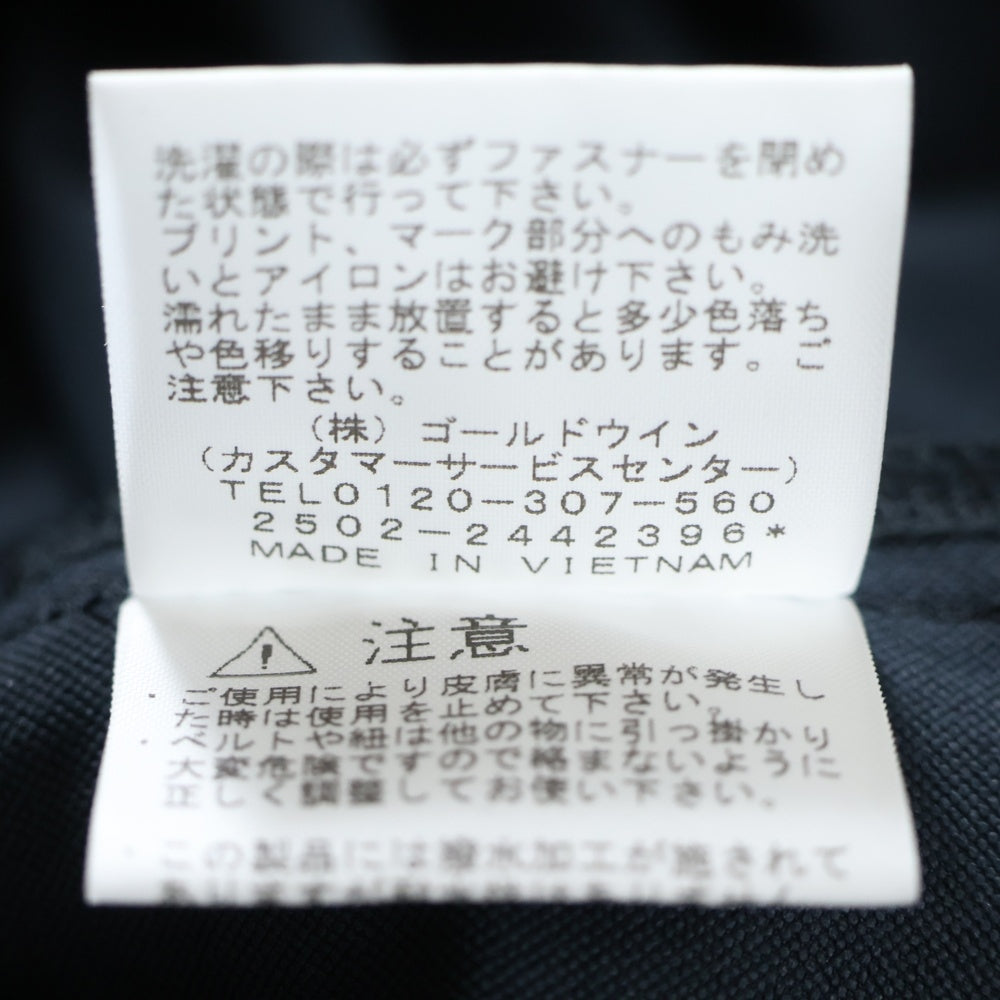 洗濯の際は必ずファスナーを閉め
た状態で行って下さい。
プリント、マーク部分へのもみ洗
いとアイロンはお避け下さい。
濡れたまま放置すると多少色落ち
や色移りすることがあります。ご
注意下さい。
(株)ゴールドウイン
(カスタマーサービスセンター)
TEL0120-307-560
2502-2442396*
MADE IN VIETNAM
注意
・ご使用により皮膚に異常が発生し
た時は使用を止めて下さい。
・ベルトや紐は他の物に引っ掛かり
大変危険ですので絡まないように
正しく調整してお使い下さい。
・この製品には撥水加工が施されて